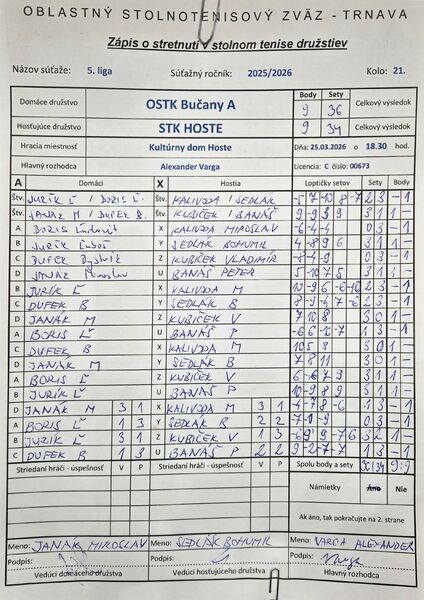 OBLASTNÝ STOLNOTENISOVÝ ZVÄZ - TRNAVA
Zápis o stretnutí v stolnom tenise družstiev
Názov súťaže: 5. liga Súťažný ročník: 2025/2026 Kolo: 21.
Body Sety
Domáce družstvo OSTK Bučany A 9 36 Celkový výsledok
Hosťujúce družstvo STK HOSTE 9 34 Celkový výsledok
Hracia miestnosť Kultúrny dom Hoste Dňa: 25.03.2026 o 18.30 hod.
Hlavný rozhodca Alexander Varga Licencia: C číslo: 00673
A Domáci X Hostia Loptičky setov Sety Body
Štv. JURÍK Ľ / BORIS Ľ. Štv. KALIVODA / SEDLÁK -5 7 -10 8 -7 2 3 - 1
Štv. JANÁK M / DUFEK B. Štv. KUBÍČEK / BANÁŠ 9 -9 3 9 3 1 1 -
A BORIS Ľudovít X KALIVODA MIROSLAV -6 -4 -4 0 3 - 1
B JURÍK Ľuboš Y SEDLÁK BOHUMIL 4 -8 9 6 3 1 1 -
C DUFEK Bystrík Z KUBÍČEK VLADIMÍR -8 -4 -9 0 3 - 1
D JANÁK Miroslav U BANÁŠ PETER 5 -10 7 5 3 1 1 -
B JURÍK Ľ X KALIVODA M 10 -9 6 -6 -10 2 3 - 1
C DUFEK B Y SEDLÁK B 8 -9 4 7 -6 2 3 - 1
D JANÁK M Z KUBÍČEK V 7 10 8 3 0 1 -
A BORIS Ľ U BANÁŠ P -6 6 -12 -7 1 3 - 1
C DUFEK B X KALIVODA M 10 5 8 3 0 1 -
D JANÁK M Y SEDLÁK B 7 8 11 3 0 1 -
A BORIS Ľ Z KUBÍČEK V 6 -6 7 9 3 1 1 -
B JURÍK Ľ U BANÁŠ P 10 -9 8 9 3 1 1 -
D JANÁK M 3 1 X KALIVODA M 3 1 -4 -7 8 -6 1 3 - 1
A BORIS Ľ 1 3 Y SEDLÁK B 2 2 -7 -1 -9 0 3 - 1
B JURÍK Ľ 3 1 Z KUBÍČEK V 1 3 -6 9 9 -7 6 3 2 1 -
C DUFEK B 1 3 U BANÁŠ P 2 2 9 -2 -7 -7 1 3 - 1
Striedaní hráči - úspešnosť V P Striedaní hráči - úspešnosť V P Spolu body a sety 36 34 9:9
Námietky Áno Nie
Ak áno, tak pokračujte na 2. strane
Meno: JANÁK MIROSLAV Meno: SEDLÁK BOHUMIL Meno: VARGA ALEXANDER
Podpis: Podpis: Podpis:
Vedúci domáceho družstva Vedúci hosťujúceho družstva Hlavný rozhodca